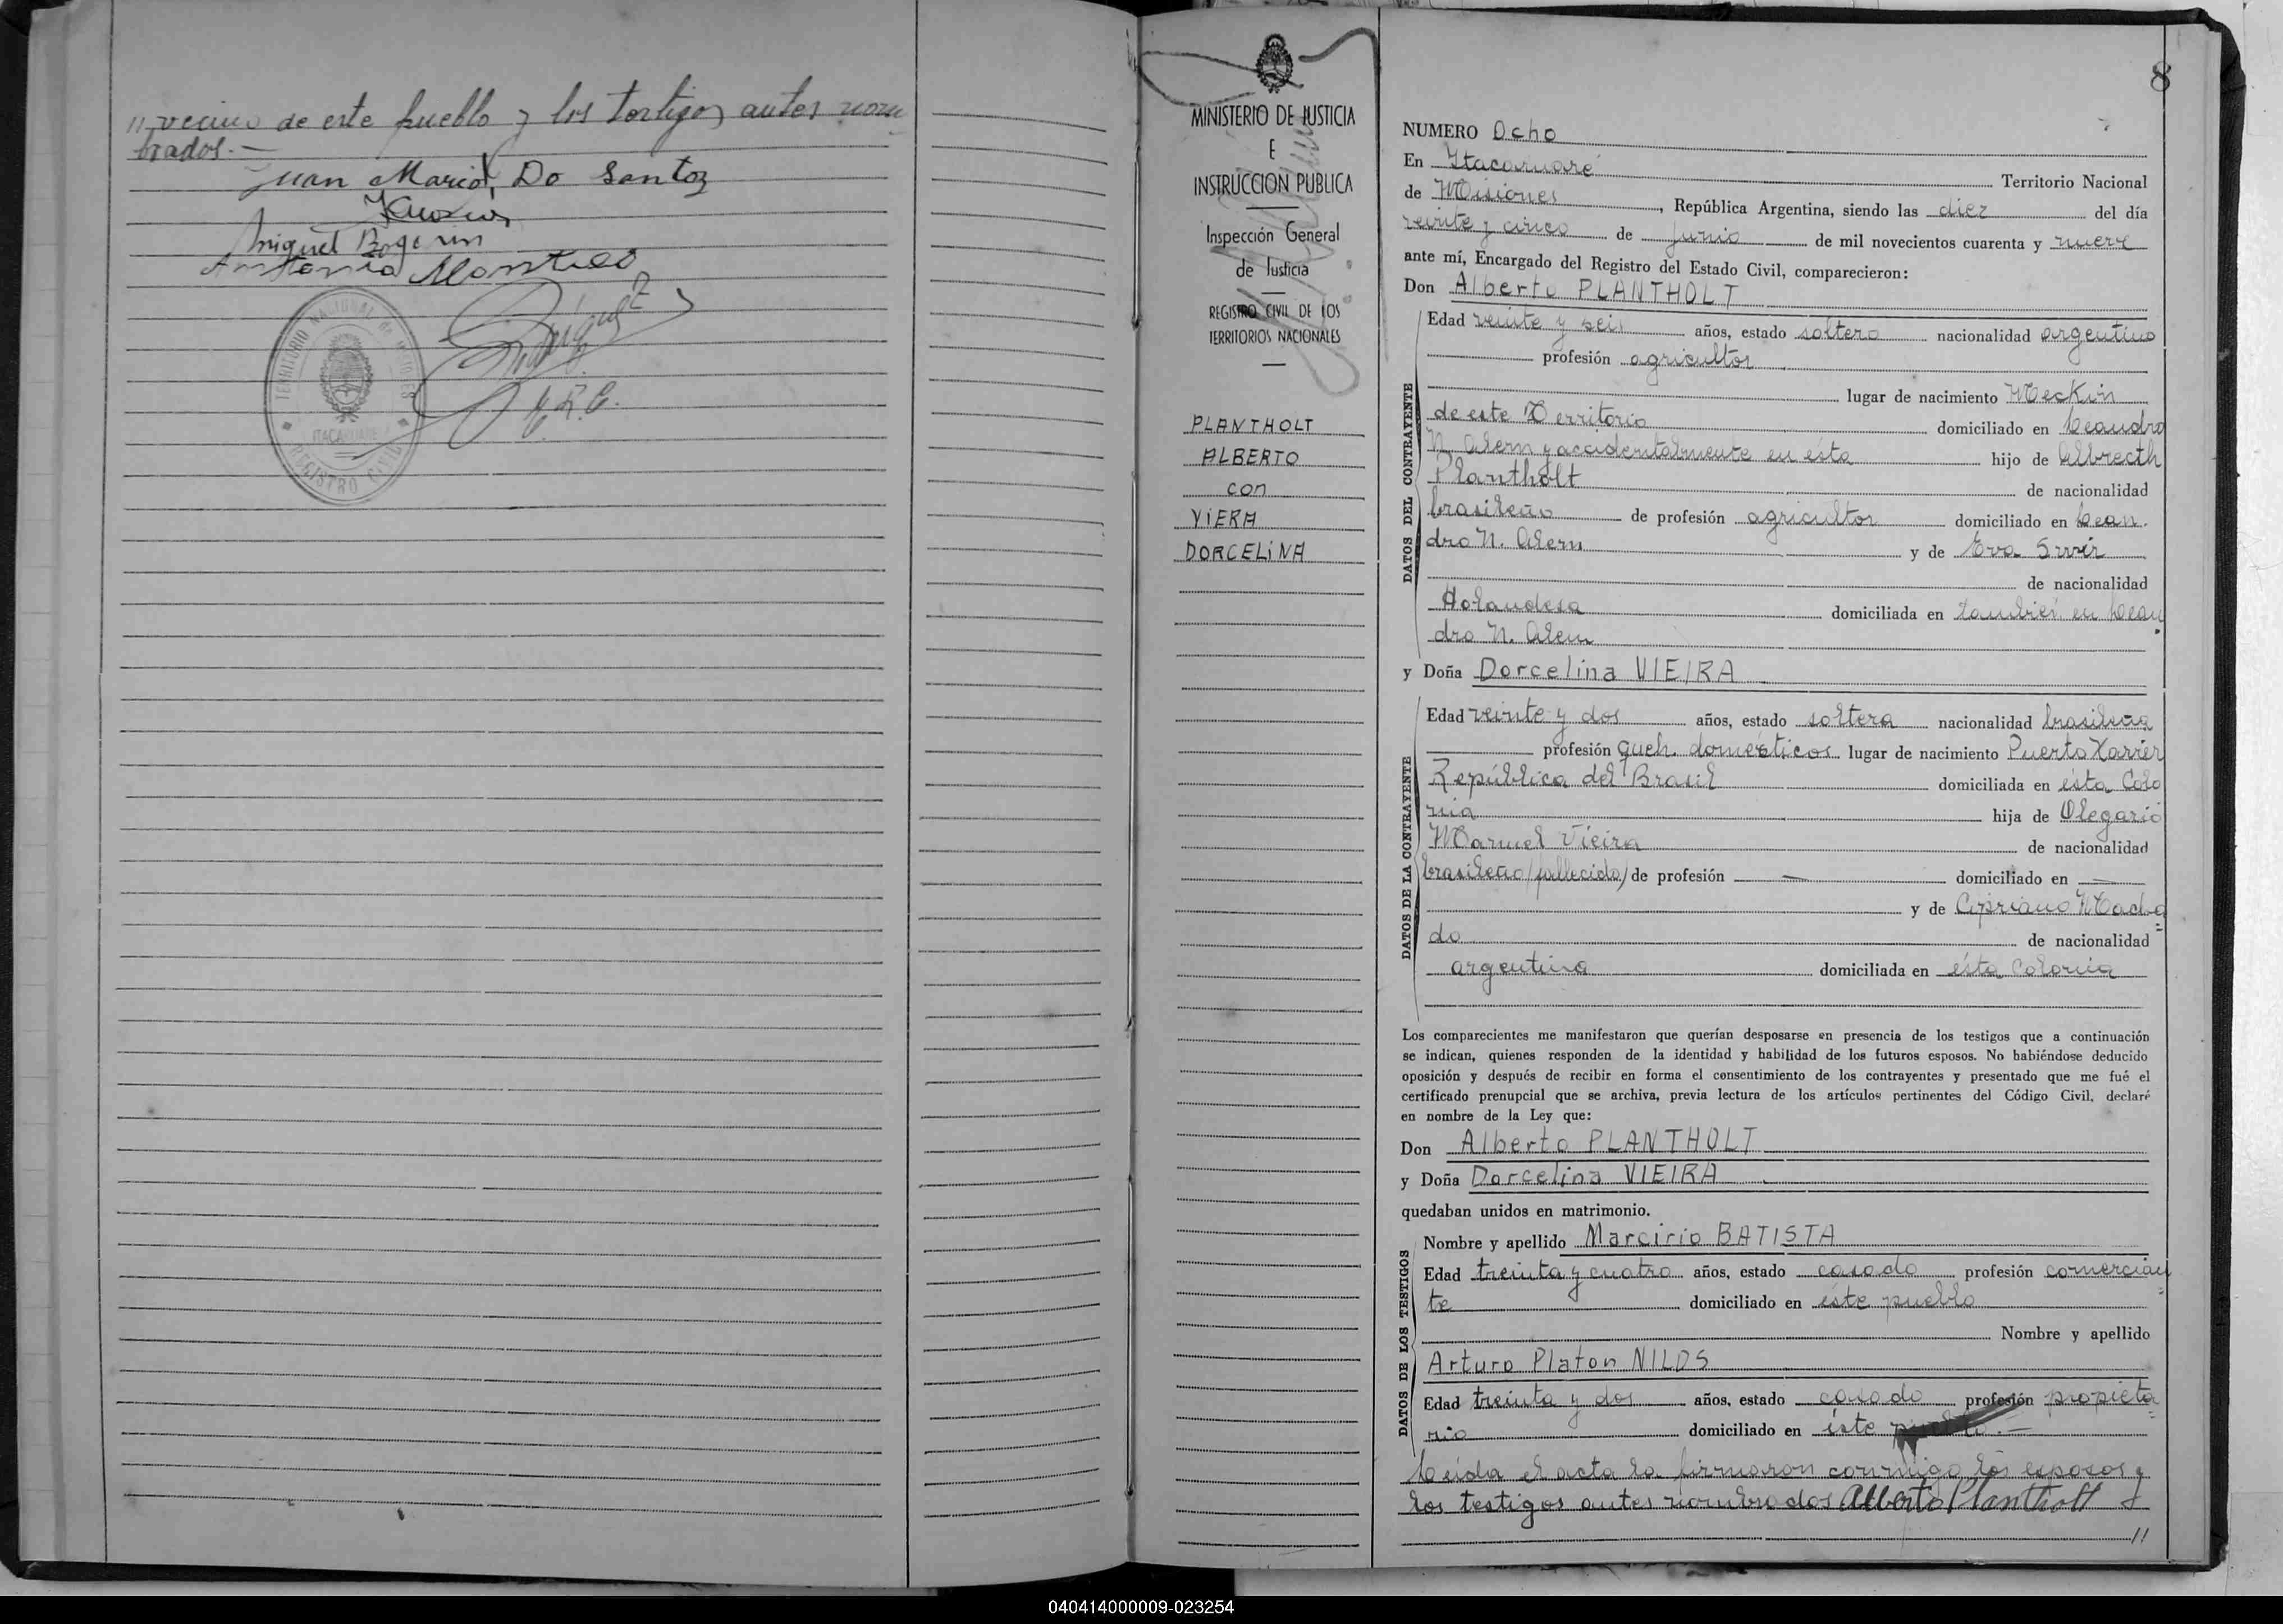 // vecino de este pueblo y los testigos antes nom
brados.—
Juan Maria Do Santos
Miguel
Antonia Montiel
TERRITORIO NACIONAL de MISIONES
ITACARUARE
REGISTRO CIVIL
E.R.C.
MINISTERIO DE JUSTICIA
E
INSTRUCCION PUBLICA
Inspección General
de Justicia
REGISTRO CIVIL DE LOS
TERRITORIOS NACIONALES
PLANTHOLT
ALBERTO
con
VIERA
DORCELINA
8
NUMERO Ocho
En Itacaruaré Territorio Nacional
de Misiones, República Argentina, siendo las diez del día
veinte y cinco de junio de mil novecientos cuarenta y nueve
ante mí, Encargado del Registro del Estado Civil, comparecieron:
Don Alberto PLANTHOLT
DATOS DEL CONTRAYENTE
Edad veinte y seis años, estado soltero nacionalidad argentino
profesión agricultor
lugar de nacimiento Meckin
de este Territorio domiciliado en Leandro
N. Alem y accidentalmente en ésta hijo de Albrecth
Plantholt de nacionalidad
brasileño de profesión agricultor domiciliado en Lean.
dro N. Alem y de Eva
de nacionalidad
Holandesa domiciliada en tambien en Lean
dro N. Alem
y Doña Dorcelina VIEIRA
DATOS DE LA CONTRAYENTE
Edad veinte y dos años, estado soltera nacionalidad brasileña
profesión queh. domésticos lugar de nacimiento Puerto Xavier
República del Brasil domiciliada en ésta Colo
nia hija de Olegario
Manuel Vieira de nacionalidad
brasileño (fallecido) de profesión — domiciliado en —
y de Cipriano Macha
do de nacionalidad
argentina domiciliada en ésta Colonia
Los comparecientes me manifestaron que querían desposarse en presencia de los testigos que a continuación
se indican, quienes responden de la identidad y habilidad de los futuros esposos. No habiéndose deducido
oposición y después de recibir en forma el consentimiento de los contrayentes y presentado que me fué el
certificado prenupcial que se archiva, previa lectura de los artículos pertinentes del Código Civil, declaré
en nombre de la Ley que:
Don Alberto PLANTHOLT
y Doña Dorcelina VIEIRA
quedaban unidos en matrimonio.
DATOS DE LOS TESTIGOS
Nombre y apellido Marcirio BATISTA
Edad treinta y cuatro años, estado casado profesión comercian
te domiciliado en este pueblo
Nombre y apellido
Arturo Platon NILOS
Edad treinta y dos años, estado casado profesión propieta
rio domiciliado en éste pueblo.—
Leida el acta la firmaron conmigo los esposos y
los testigos antes nombrados Alberto Plantholt
//
040414000009-023254